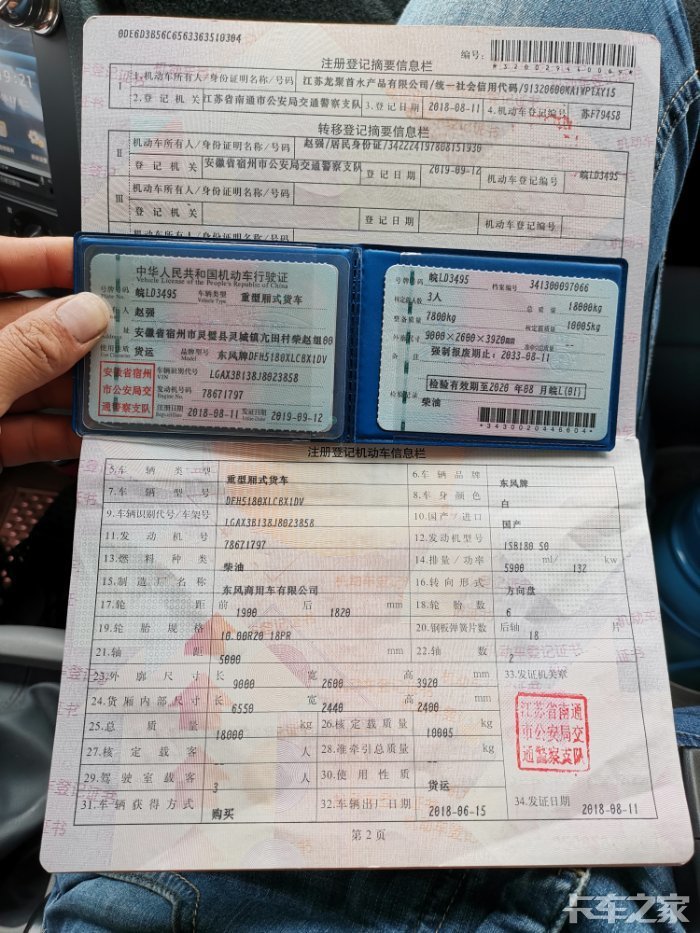 0DE6D3B56C6563363510304
编号：
*320029440069*
注册登记摘要信息栏
I 1.机动车所有人/身份证明名称/号码 江苏龙聚首水产品有限公司/统一社会信用代码/91320600MA1WP1XY15
2.登记机关 江苏省南通市公安局交通警察支队 3.登记日期 2018-08-11 4.机动车登记编号 苏F79458
转移登记摘要信息栏
II 机动车所有人/身份证明名称/号码 赵强/居民身份证/342224197808151930
登记机关 安徽省宿州市公安局交通警察支队 登记日期 2019-09-12 机动车登记编号 皖LD3495
III 机动车所有人/身份证明名称/号码
登记机关 登记日期 机动车登记编号
机动车所有人/身份证明名称/号码
中华人民共和国机动车行驶证
Vehicle License of the People's Republic of China
号牌号码 皖LD3495 车辆类型 重型厢式货车
Plate No. Vehicle Type
人 赵强
址 安徽省宿州市灵璧县灵城镇亢田村柴赵组00
使用性质 货运 品牌型号 东风牌DFH5180XLCBX1DV
Use Character Model
安徽省宿州
市公安局交
通警察支队
车辆识别代号 LGAX3B138J8023858
VIN
发动机号码 78671797
Engine No.
注册日期 2018-08-11 发证日期 2019-09-12
Register Date Issue Date
号牌号码 皖LD3495 档案编号 341300097066
核定载人数 3人 总质量 18000kg
整备质量 7800kg 核定载质量 10005kg
外廓尺寸 9000×2600×3920mm
备注 强制报废期止：2033-08-11
检验有效期至2020年08月皖L(01)
检验记录
柴油
*3430020446604*
注册登记机动车信息栏
5.车辆类型 重型厢式货车 6.车辆品牌 东风牌
7.车辆型号 DFH5180XLCBX1DV 8.车身颜色 白
9.车辆识别代号/车架号 LGAX3B138J8023858 10.国产/进口 国产
11.发动机号 78671797 12.发动机型号 ISB180 50
13.燃料种类 柴油 14.排量/功率 5900 ml/ 132 kw
15.制造厂名称 东风商用车有限公司 16.转向形式 方向盘
17.轮距 前 1900 后 1820 mm 18.轮胎数 6
19.轮胎规格 10.00R20 18PR 20.钢板弹簧片数 后轴 18 片
21.轴距 5000 mm 22.轴数 2
23.外廓尺寸 长 9000 宽 2600 高 3920 mm 33.发证机关章
24.货厢内部尺寸 长 6550 宽 2440 高 2400 mm
江苏省南通
市公安局交
通警察支队
25.总质量 18000 kg 26.核定载质量 10005 kg
27.核定载客 -- 人 28.准牵引总质量 -- kg
29.驾驶室载客 3 人 30.使用性质 货运
31.车辆获得方式 购买 32.车辆出厂日期 2018-06-15 34.发证日期 2018-08-11
第2页
卡车之家